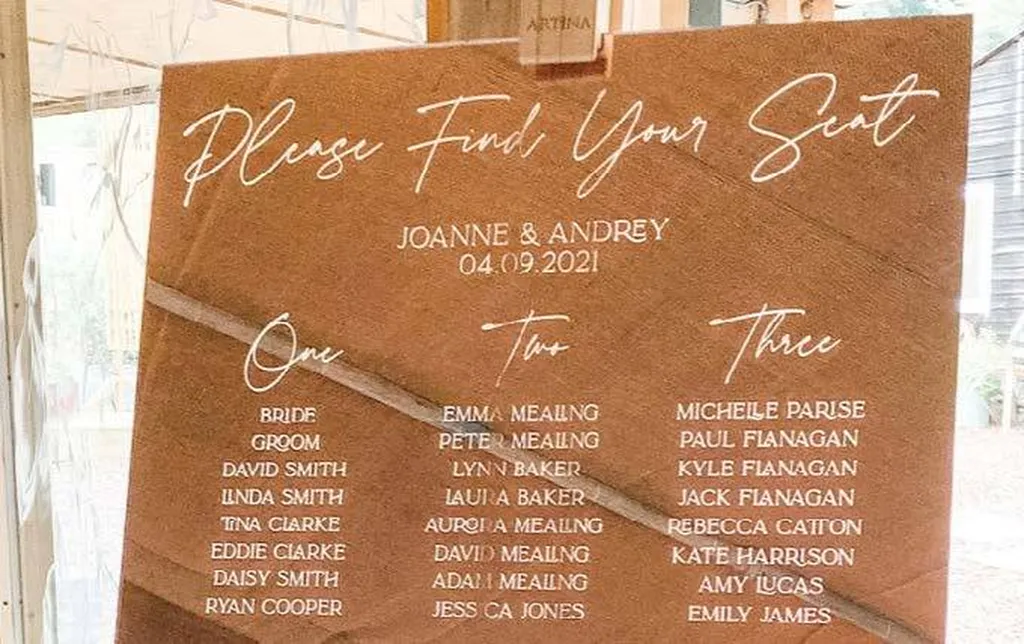 ARTINA
Please Find Your Seat
JOANNE & ANDREY
04.09.2021
One
BRIDE
GROOM
DAVID SMITH
LINDA SMITH
TINA CLARKE
EDDIE CLARKE
DAISY SMITH
RYAN COOPER
Two
EMMA MEALING
PETER MEALING
LYNN BAKER
LAURA BAKER
AURORA MEALING
DAVID MEALING
ADAM MEALING
JESSICA JONES
Three
MICHELLE PARISE
PAUL FLANAGAN
KYLE FLANAGAN
JACK FLANAGAN
REBECCA CATTON
KATE HARRISON
AMY LUCAS
EMILY JAMES